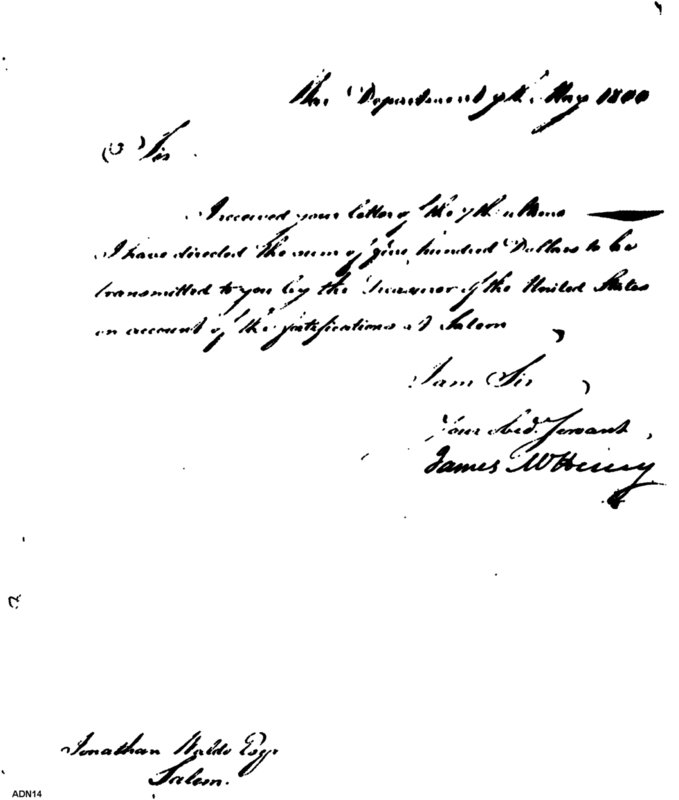 War Department 9th May 1800
Sir
I received your letter of the 7th ultimo
I have directed the sum of five hundred Dollars to be
transmitted to you by the Treasurer of the United States
on account of the fortifications at Salem
I am Sir
Your obed. Servant,
James McHenry
Jonathan Waldo Esqr
Salem.
ADN14